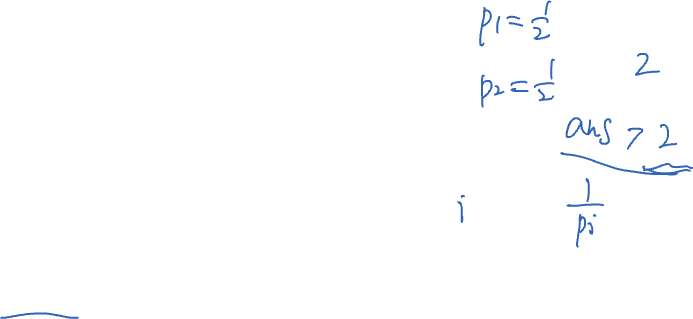 p1 = 1/2
p2 = 1/2 2
ans > 2
i 1/pi